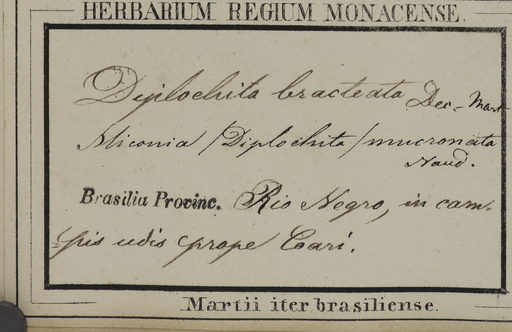 HERBARIUM REGIUM MONACENSE.
Diplochita bracteata Dec.- Mart
Miconia /Diplochita/ mucronata
Naud.
Brasilia Provinc. Rio Negro, in cam-
pis udis prope Cari.
Martii iter brasiliense.